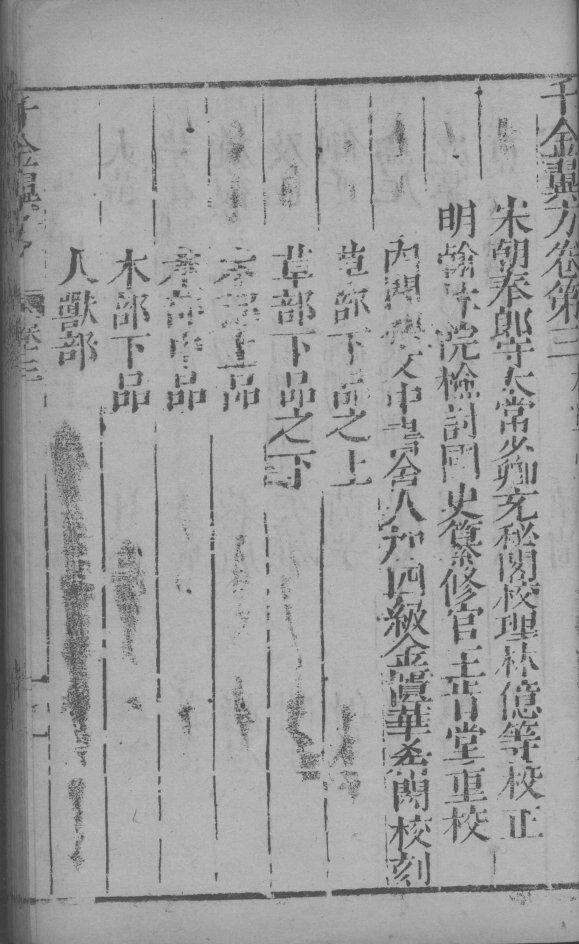 千金翼方卷第三
宋朝奉郎守太常少卿充秘閣校理林億等校正
明翰林院檢討國史纂修官王肯堂重校
內閣 文中書舍人加四級金匱華希閎校刻
草部下品之上
草部下品之下
木部上品
木部中品
木部下品
人獸部
千金翼方 卷三